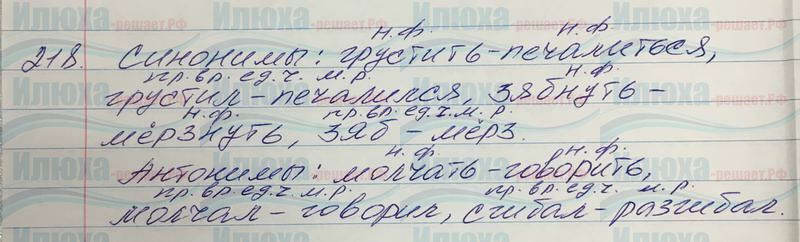 н.ф. н.ф.
218. Синонимы: грустить-печалиться,
пр.вр. ед.ч. м.р. н.ф.
грустил-печалился, зябнуть-
н.ф. пр.вр.ед.ч.м.р.
мёрзнуть, зяб-мёрз.
н.ф. н.ф.
Антонимы: молчать-говорить,
пр.вр.ед.ч. м.р. пр.вр.ед.ч. м.р.
молчал-говорил, сгибал-разгибал.
Илюха -решает.РФ